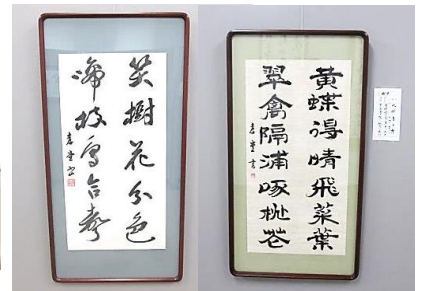 笑樹花分色
啼枝鳥合聲
黄蝶得晴飛菜葉
翠禽隔浦啄桃花